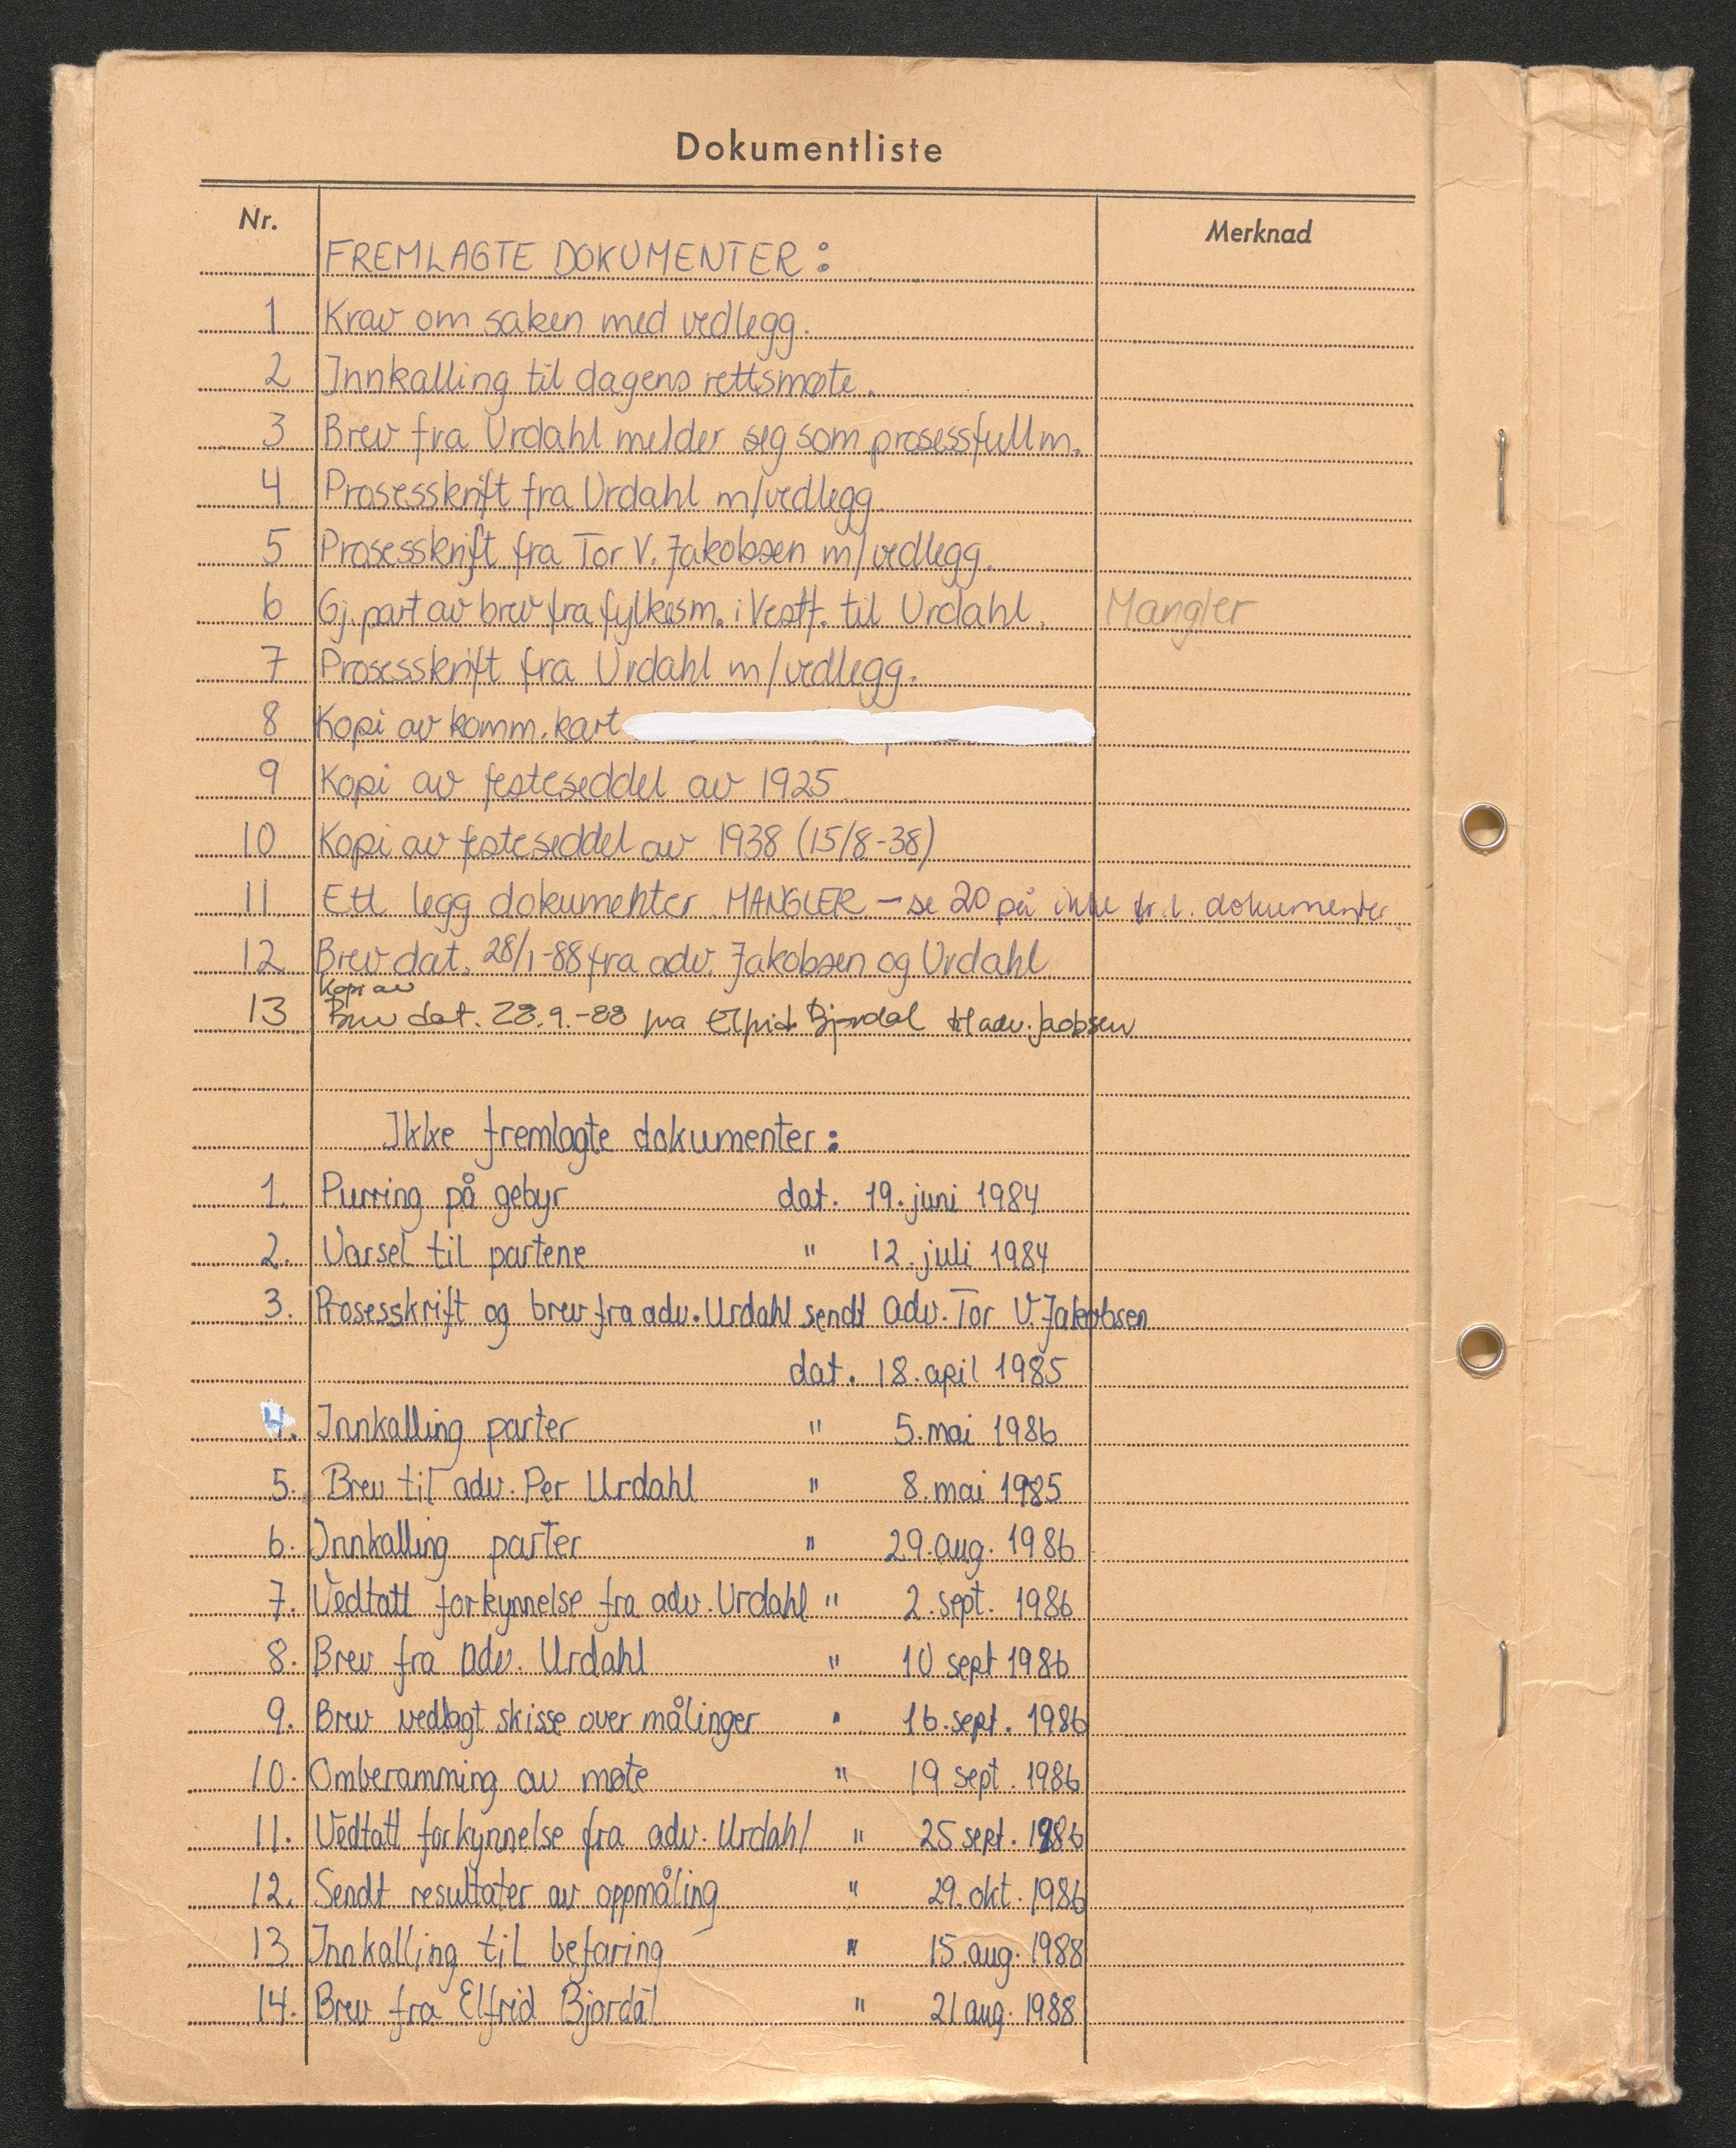 Dokumentliste
Nr. Merknad
FREMLAGTE DOKUMENTER:
1 Krav om saken med vedlegg.
2 Innkalling til dagens rettsmøte.
3 Brev fra Urdahl melder seg som prosessfullm.
4 Prosesskrift fra Urdahl m/vedlegg
5 Prosesskrift fra Tor V. Jakobsen m/vedlegg.
6 Gj.part av brev fra fylkesm. i Vestf. til Urdahl. Mangler
7 Prosesskrift fra Urdahl m/vedlegg.
8 Kopi av komm. kart
9 Kopi av festeseddel av 1925
10 Kopi av festeseddel av 1938 (15/8-38)
11 Ett legg dokumenter MANGLER - se 20 på ikke fr.l. dokumenter
12 Brev dat. 28/1-88 fra adv. Jakobsen og Urdahl
Kopi av
13 Brev dat. 28.9.-88 fra Elfrid Bjordal til adv. Jacobsen
Ikke fremlagte dokumenter:
1. Purring på gebyr dat. 19. juni 1984
2. Varsel til partene " 12. juli 1984
3. Prosesskrift og brev fra adv. Urdahl sendt Adv. Tor V. Jakobsen
dat. 18. april 1985
4. Innkalling parter " 5. mai 1986
5. Brev til adv. Per Urdahl " 8. mai 1985
6. Innkalling parter " 29. aug. 1986
7. Vedtatt forkynnelse fra adv. Urdahl " 2. sept. 1986
8. Brev fra Adv. Urdahl " 10 sept 1986
9. Brev vedlagt skisse over målinger " 16. sept. 1986
10. Omberamming av møte " 19 sept. 1986
11. Vedtatt forkynnelse fra adv. Urdahl " 25 sept. 1986
12. Sendt resultater av oppmåling " 29. okt. 1986
13 Innkalling til befaring " 15. aug. 1988
14. Brev fra Elfrid Bjordal " 21 aug. 1988